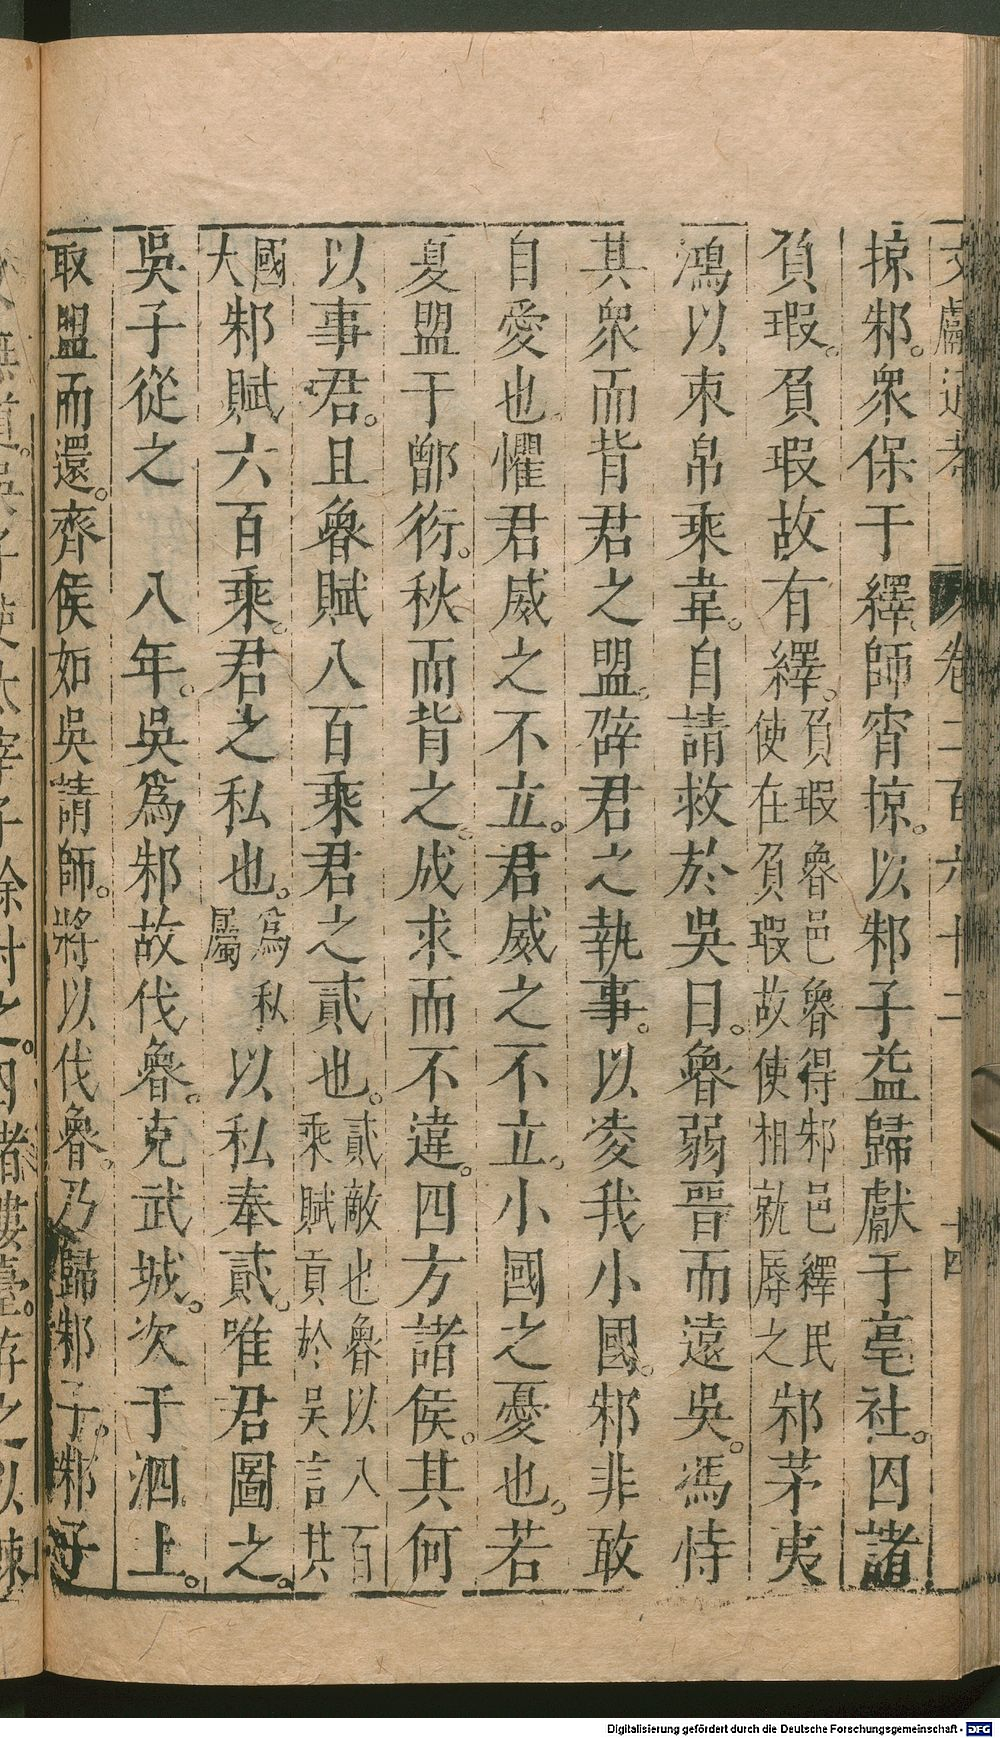 文獻通考　卷二百六十二　十四
掠邾。衆保于繹。師宵掠。以邾子益歸獻于亳社。囚諸
負瑕。負瑕故有繹。負瑕魯邑魯得邾邑繹民
使在負瑕故使相就辱之邾茅夷
鴻以束帛乘韋。自請救於吳曰。魯弱晉而遠吳。馮恃
其衆而背君之盟。辟君之執事。以凌我小國。邾非敢
自愛也懼君威之不立。君威之不立。小國之憂也。若
夏盟于鄫衍。秋而背之。成求而不違。四方諸侯。其何
以事君。且魯賦八百乘君之貳也。貳敵也魯以八百
乘賦貢於吳言其
國
大邾賦六百乘。君之私也。爲私
屬以私奉貳。唯君圖之。
吳子從之　八年。吳爲邾故伐魯。克武城。次于泗上。
取盟而還。齊侯如吳請師。將以伐魯。乃歸邾子。邾子
Digitalisierung gefördert durch die Deutsche Forschungsgemeinschaft - DFG